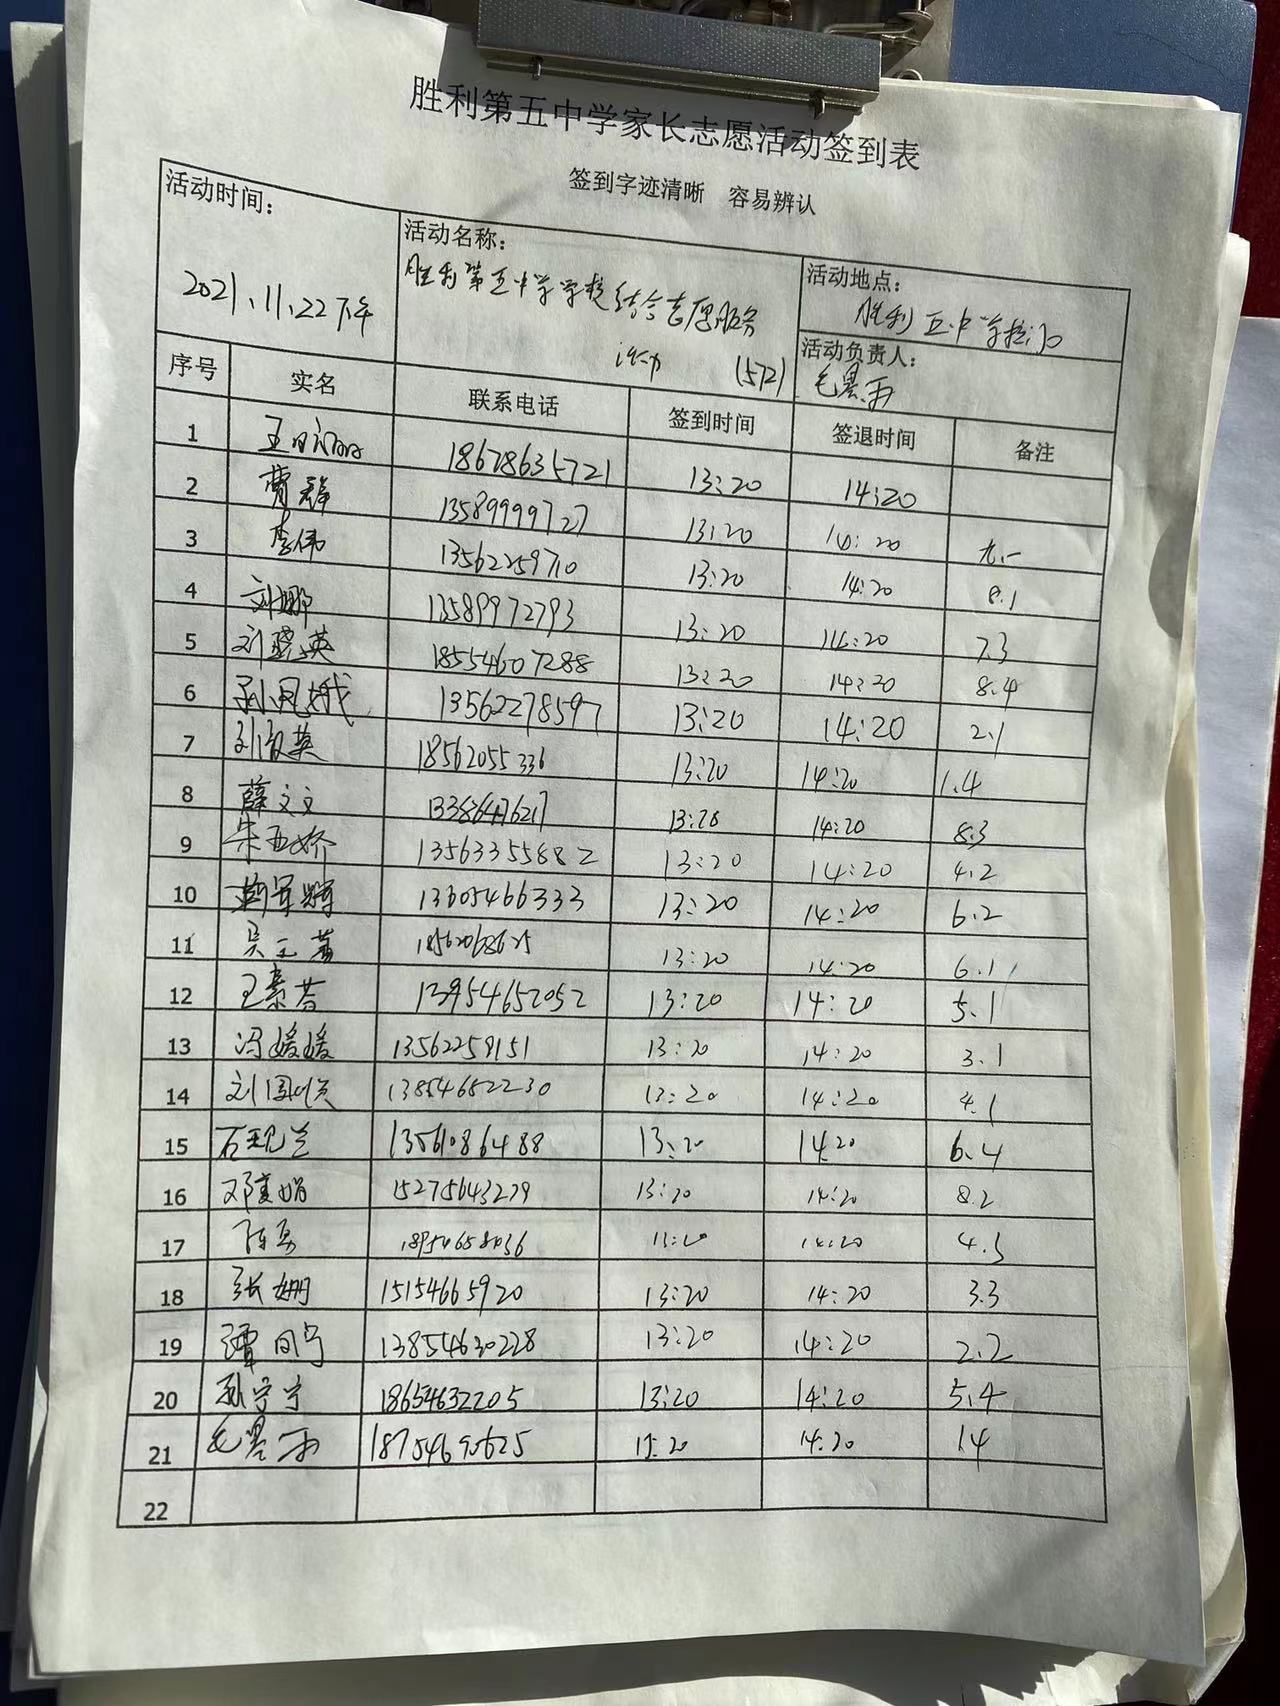 胜利第五中学家长志愿活动签到表
签到字迹清晰 容易辨认
活动时间：
2021.11.22下午
活动名称：
胜利第五中学学校结合志愿服务
活动 (572)
活动地点：
胜利五中学校门口
活动负责人：
毛墨雨
序号 实名 联系电话 签到时间 签退时间 备注
1 18678635721 13:20 14:20
2 曹群 13589999727 13:20 14:20
3 李伟 13562259710 13:20 14:20 8.1
4 刘娜 13589972793 13:20 14:20 7.3
5 刘晓英 18554607288 13:20 14:20 8.4
6 孙凤娥 13562278597 13:20 14:20 2.1
7 刘淑英 18562055336 13:20 14:20 1.4
8 薛文文 13386476217 13:20 14:20 8.3
9 朱亚娇 13563355882 13:20 14:20 4.2
10 13605466333 13:20 14:20 6.2
11 吴玉萧 18562068625 13:20 14:20 6.1
12 王素芬 13954652052 13:20 14:20 5.1
13 冯媛媛 13562259151 13:20 14:20 3.1
14 刘国 13854652230 13:20 14:20 4.1
15 石现兰 13561086488 13:20 14:20 6.4
16 邓美娟 15275643279 13:20 14:20 8.2
17 陈勇 18954658436 13:20 14:20 4.3
18 张姗 15154665920 13:20 14:20 3.3
19 谭同宁 13854630228 13:20 14:20 2.2
20 孙宁宁 18654632205 13:20 14:20 5.4
21 毛墨雨 18754690625 13:20 14:20 14
22